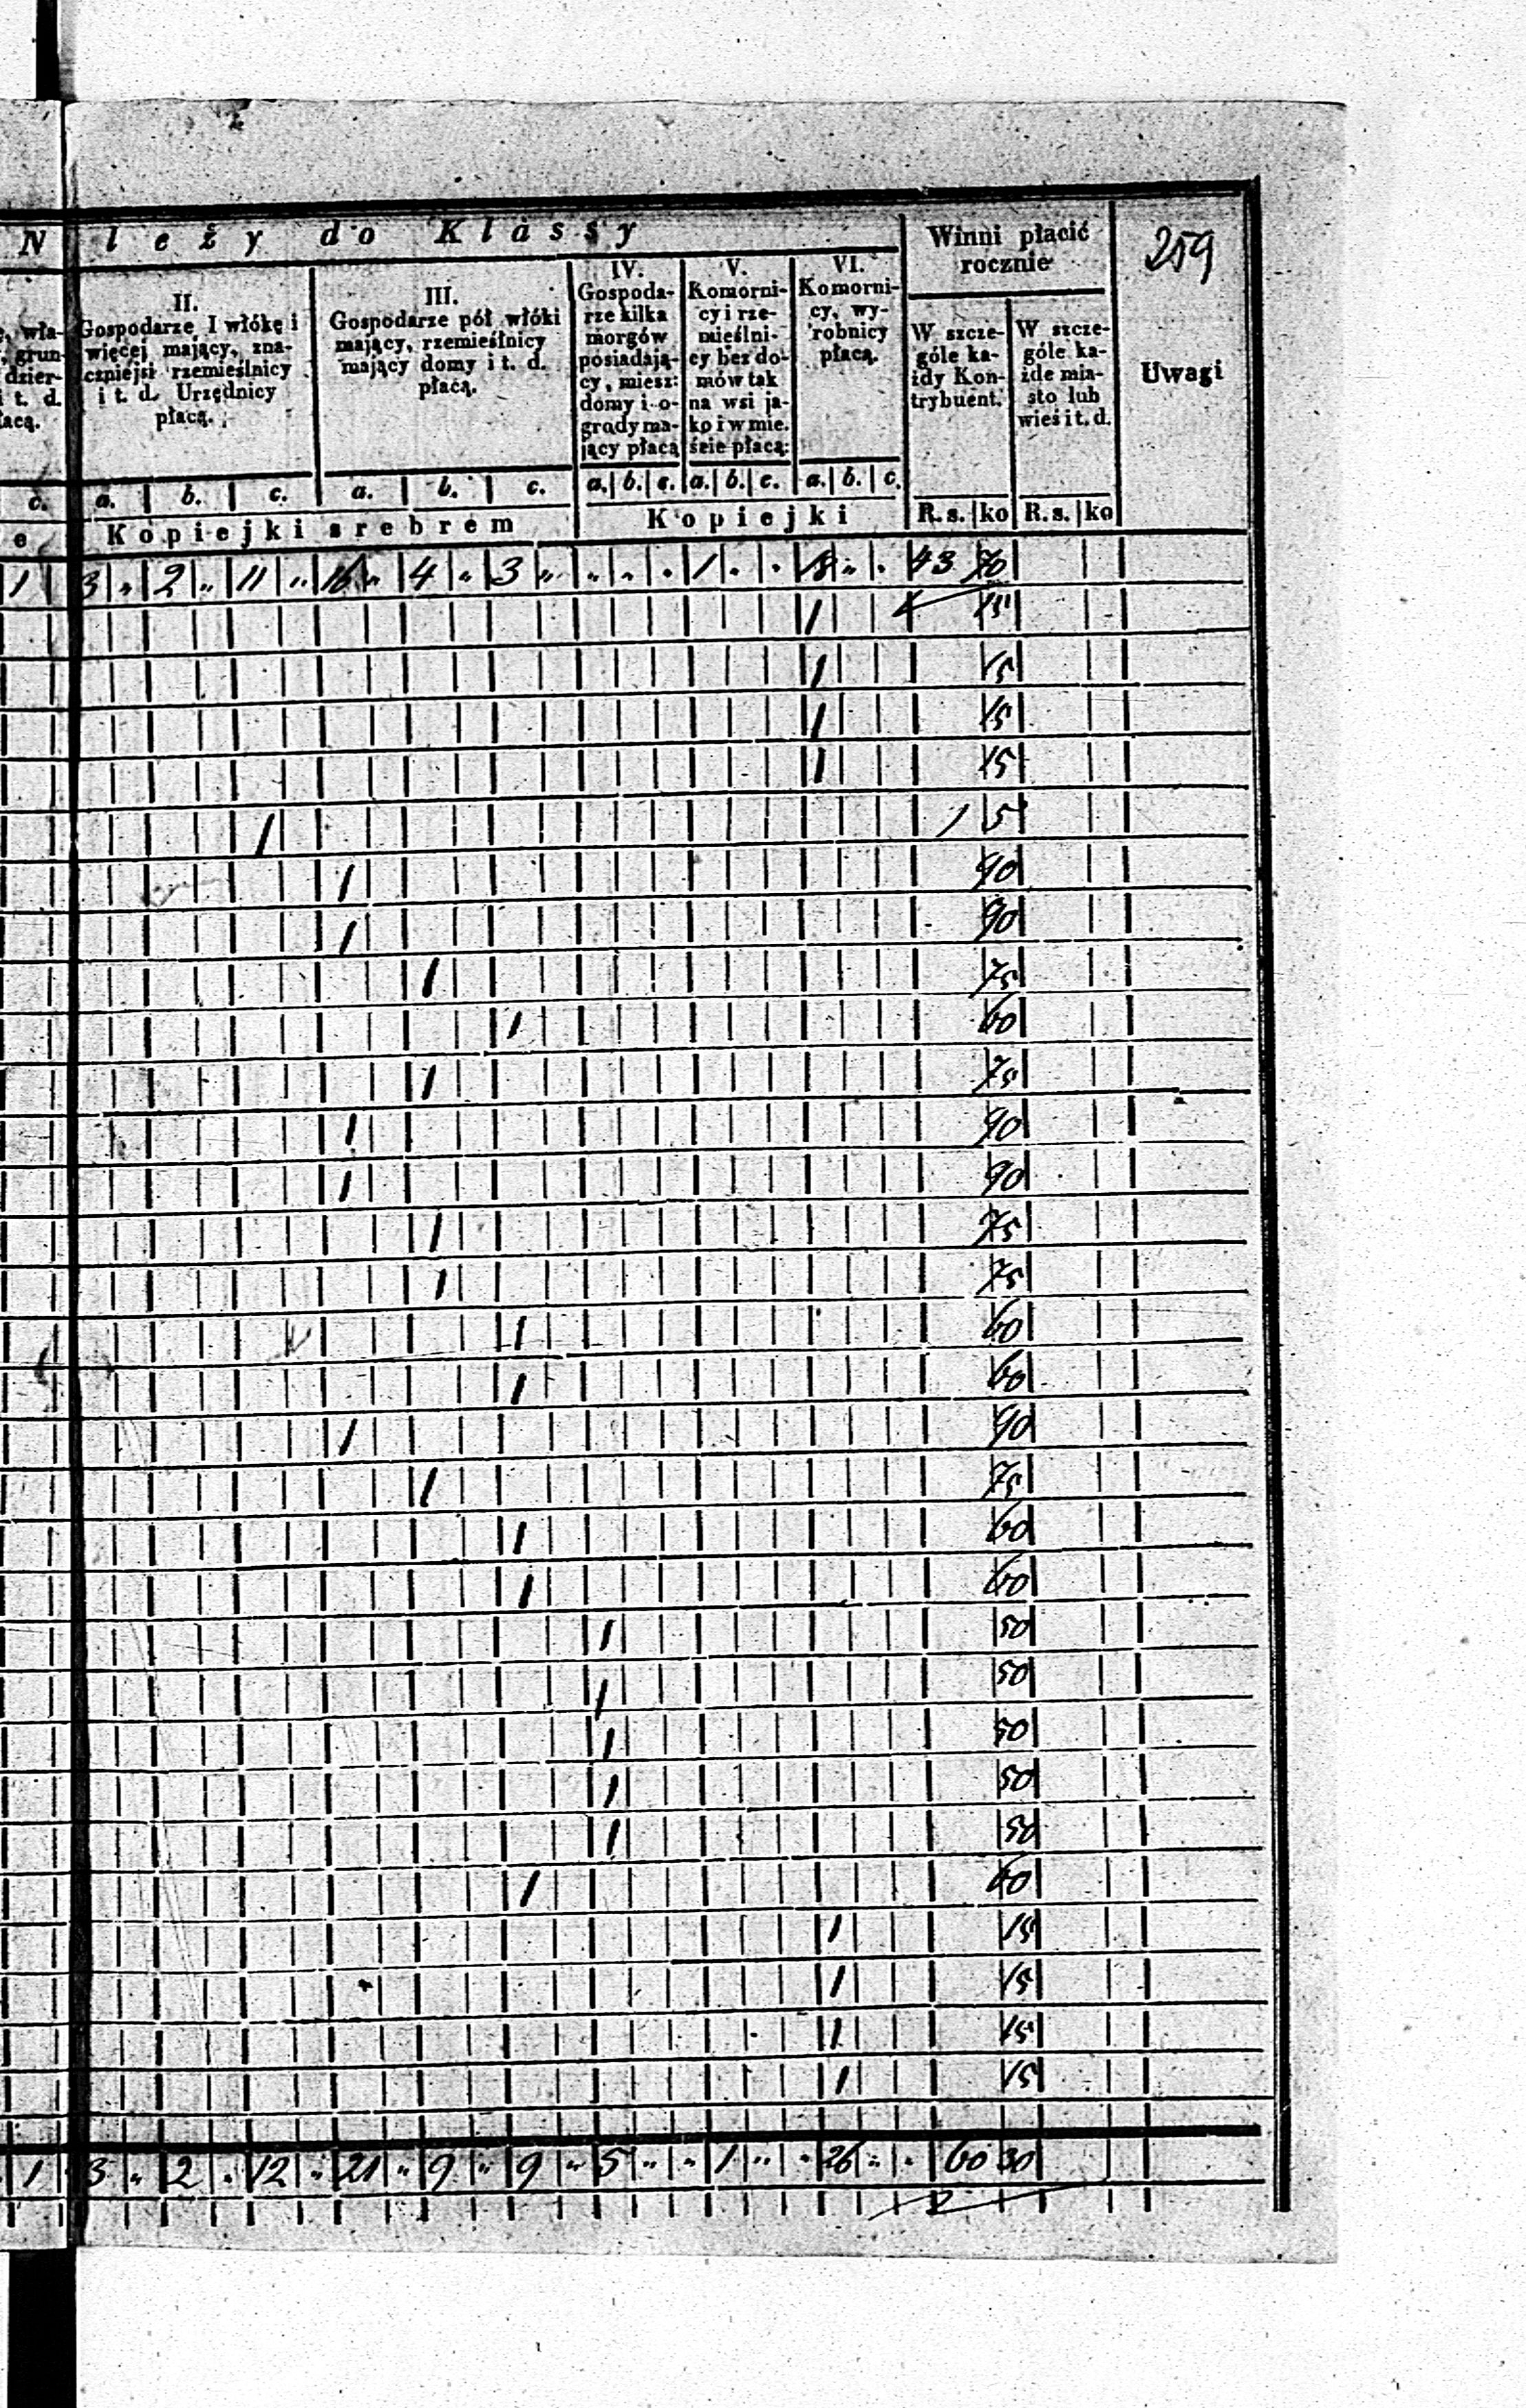 N l e ż y d o K l a s s y
Winni płacić rocznie
259
, wła-
, grun-
dzier-
i t. d.
łacą.
II.
Gospodarze I włókę i
więcej mający, zna-
czniejsi rzemieślnicy
i t. d. Urzędnicy
płacą.
III.
Gospodarze pół włóki
mający, rzemieślnicy
mający domy i t. d.
płacą.
IV.
Gospoda-
rze kilka
morgów
posiadają-
cy, miesz:
domy i o-
grody ma-
jący płacą
V.
Komorni-
cy i rze-
mieślni-
cy bez do-
mów tak
na wsi ja-
ko i w mie.
ście płacą:
VI.
Komorni-
cy, wy-
robnicy
płacą.
W szcze-
góle ka-
żdy Kon-
trybuent.
W szcze-
góle ka-
żde mia-
sto lub
wieś i t. d.
Uwagi
c. a. b. c. a. b. c. a. b. c. a. b. c. a. b. c.
e K o p i e j k i s r e b r e m K o p i e j k i R. s. ko R. s. ko
1 3 " 2 " 11 " 16 " 4 " 3 " " " " 1 " " 18 " " 43 70
1 15
1 15
1 15
1 15
1 1 5
1 90
1 90
1 75
1 60
1 75
1 90
1 90
1 75
1 75
1 60
1 60
1 90
1 75
1 60
1 60
1 50
1 50
1 50
1 50
1 50
1 60
1 15
1 15
1 15
1 15
1 3 " 2 " 12 " 21 " 9 " 9 " 5 " " 1 " " 26 " " 60 30